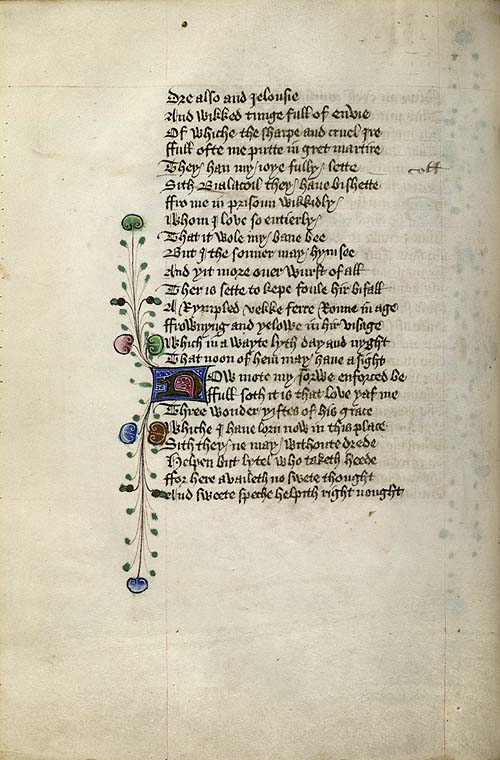 Dre also and Jelousie
And wikked tunge full of envie
Of whiche the sharpe and cruel Jre
ffull ofte me putte in gret martire
They han my ioye fully lette
Sith Bialacoil they have bishette
ffro me in prisoun wikkidly
Whom I love so entierly
That it wole my bane bee
But I the sonner may hym see
And yit more over wurst of all
Ther is sette to kepe foule hir bifall
A Rympled vekke ferre Ronne in age
ffrownyng and yelowe in hir visage
Which in a wayte lyth day and nyght
That noon of hem may have a sight
Now mote my sorwe enforced be
ffull soth it is that love yaf me
Three wonder yiftes of his grace
Whiche I have lorn now in this place
Sith they ne may withoute drede
Helpen but lytel who taketh heede
ffor here availeth no swete thought
And sweete speche helpith right nought